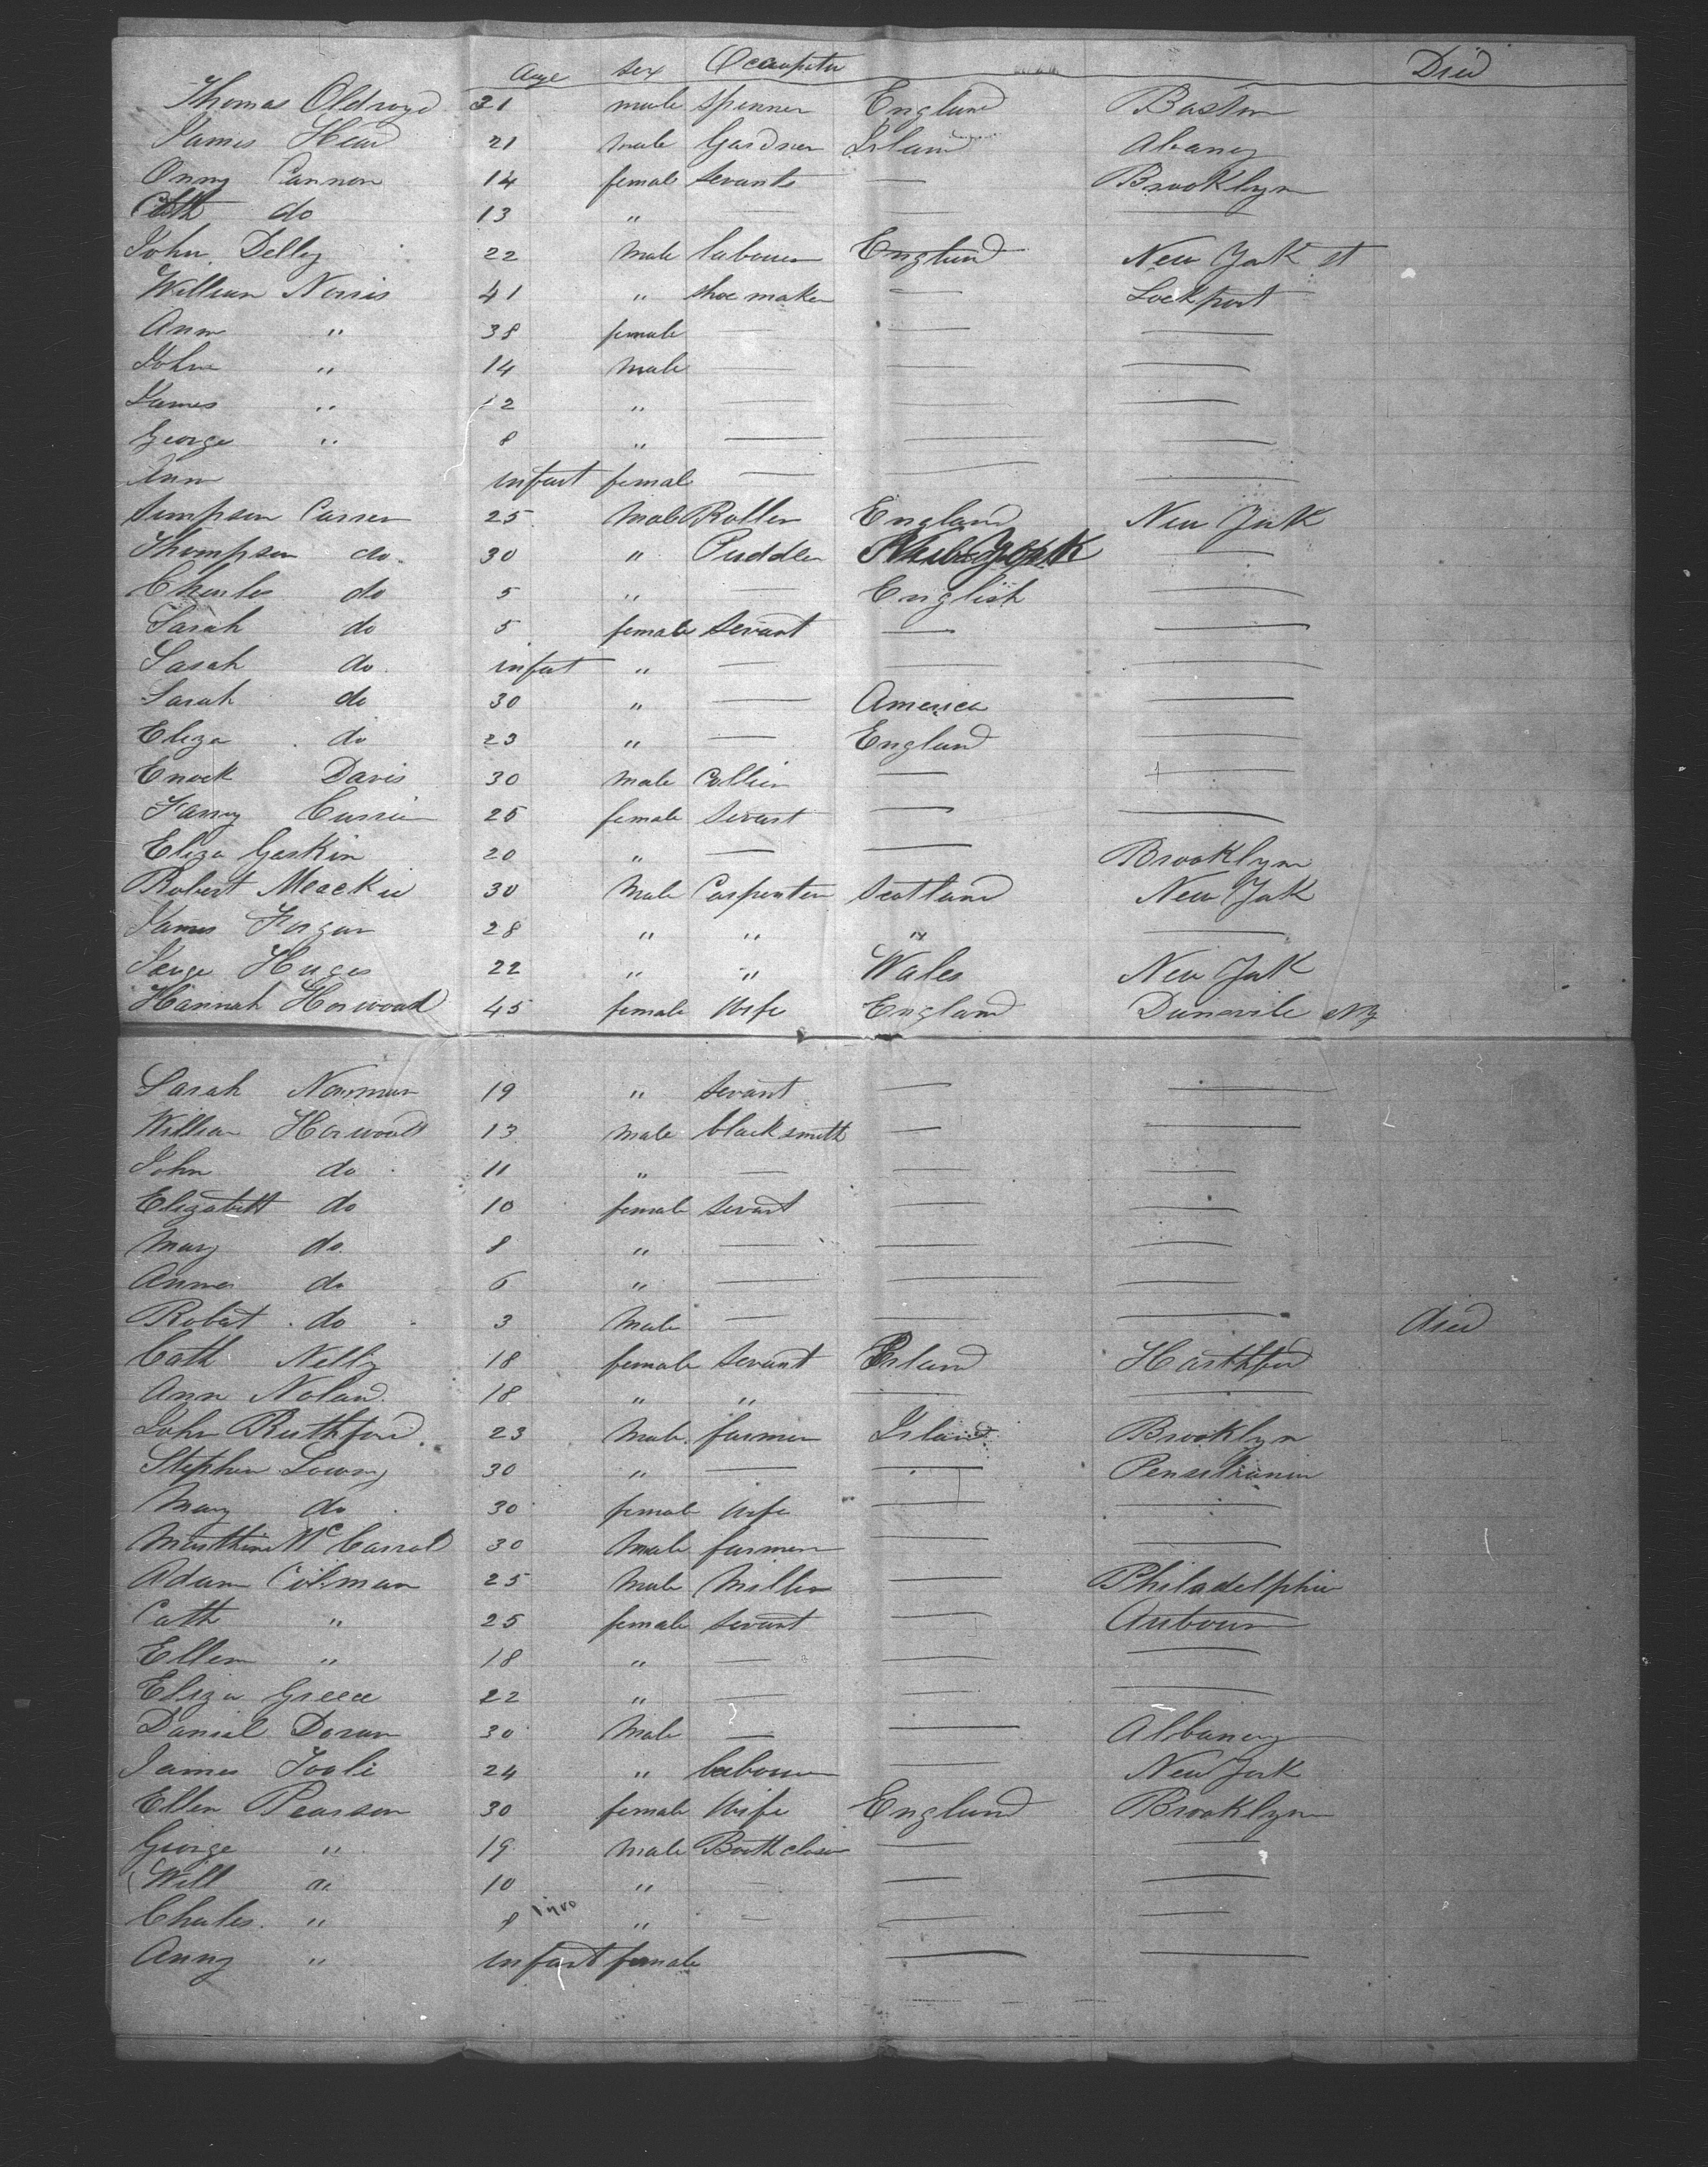 Auge sex Occupatu Died
Thomas Oldroyd 21 male spinner England Boston
James Head 21 male Gardner Irland Abaney
Anny Cannon 14 female servants — Brooklyn
Cath do 13 " — — —
John Delley 22 male labouer England New York st
William Norris 41 " shoe maker — Lockport
Ann " 38 female — — —
John " 14 male — — —
James " 12 " — — —
George " 8 " — — —
Ann infant female — — —
Simpson Curren 25 male Roller England New York
Thompson do 30 " Puddler —
Charles do 5 " — English —
Sarah do 5 female servant — —
Sarah do infant " — — —
Sarah do 30 " — America —
Eliza do 23 " — England —
Enock Davis 30 male Collier — —
Fanny Currie 25 female servant — —
Eliza Gaskin 20 " — — Brooklyn
Robert Meackie 30 male Carpenter Scotland New York
James Forgan 28 " " " —
Huges 22 " " Wales New York
Hannah Horwood 45 female Wife England Dunsvile NY
Sarah Norman 19 " servant — —
William Horwood 13 male blacksmith — —
John do 11 " — — —
Elizabeth do 10 female servant — —
Mary do 8 " — — —
Anna do 6 " — — —
Robert do 3 male — — — died
Cath Nelly 18 female servant Irland Harthford
Ann Noland 18 " " — —
John Ruthford 23 male farmer Irland Brooklyn
Stephen Lowry 30 " — — Pensilvania
Mary do 30 female wife — —
McCarrol 30 male farmer — —
Adam Colman 25 male Miller — Philadelphia
Cath " 25 female servant — Aubourn
Ellen " 18 " — — —
Eliza Greece 22 " — — —
Daniel Doran 30 male — — Albaney
James Tooli 24 " labouer — New York
Ellen Pearson 30 female Wife England Brooklyn
George " 19 male — —
Will " 10 " — — —
Charles " 8 " — — —
Anny " infant female — —